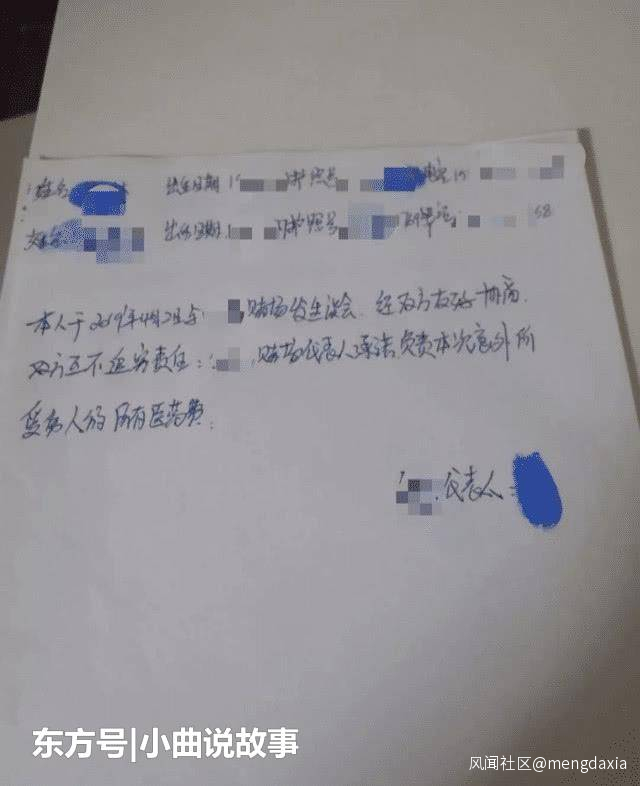 姓名 出生日期 护照号
姓名 出生日期 护照号 58
本人于2019年4月2日与 赌场发生误会、经双方友好协商、
双方互不追究责任： 赌场代表人承诺负责本次意外所
受伤人的所有医药费；
代表人：
东方号|小曲说故事
风闻社区@mengdaxia